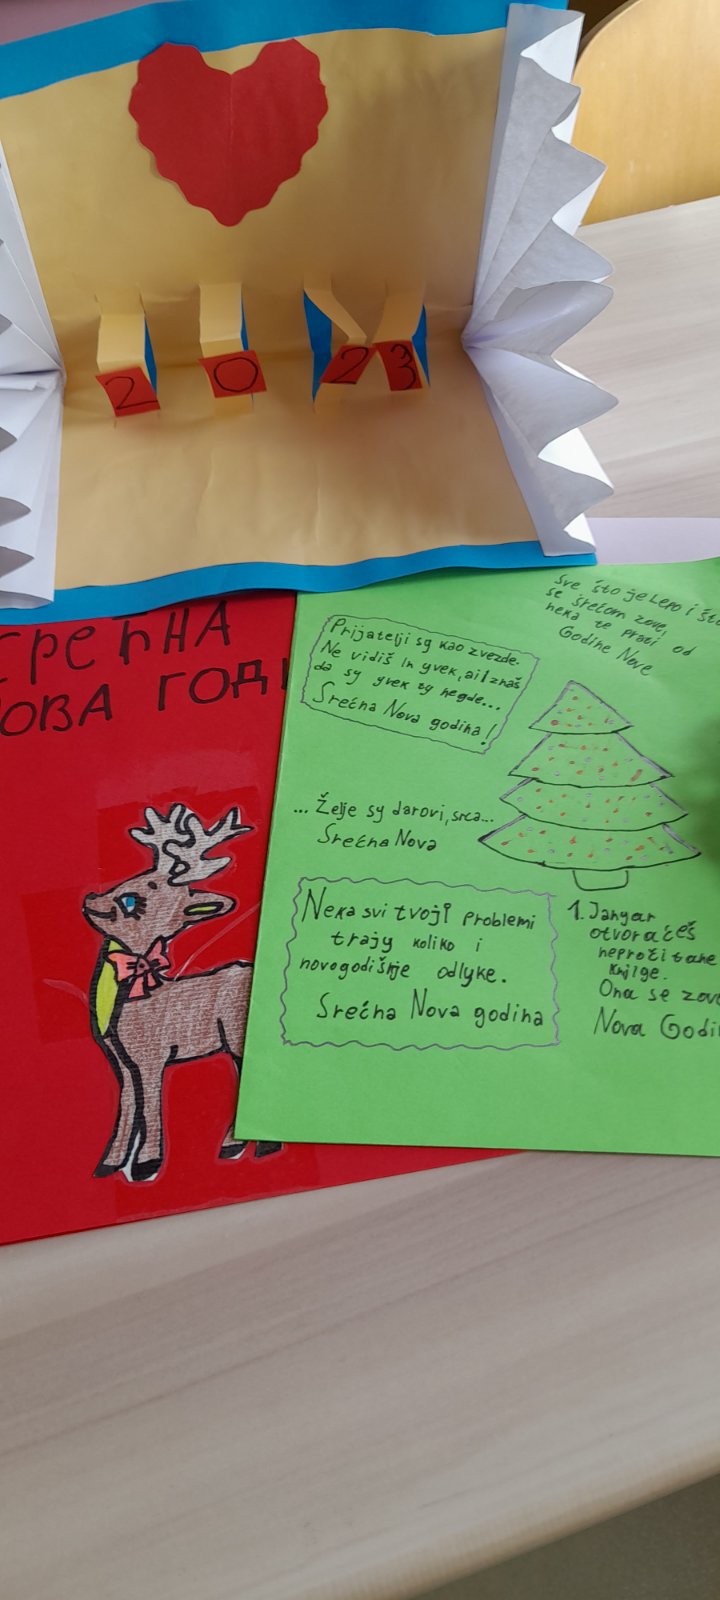 2 0 2 3
СРЕЋНА
ОВА ГОДИ
Sve što je Lepo i što
se srećom zove,
neka te prati od
Godine Nove
Prijatelji sy kao zvezde.
Ne vidiš ih yvek, ali znaš
da sy yvek ty negde...
Srećna Nova godina!
... Želje sy darovi, srca...
Srećna Nova
Neka svi tvoji problemi
trajy koliko i
novogodišnje odlyke.
Srećna Nova godina
1. Janyar
otvoračeš
neproči tane
Knjige.
Ona se zove
Nova Godi